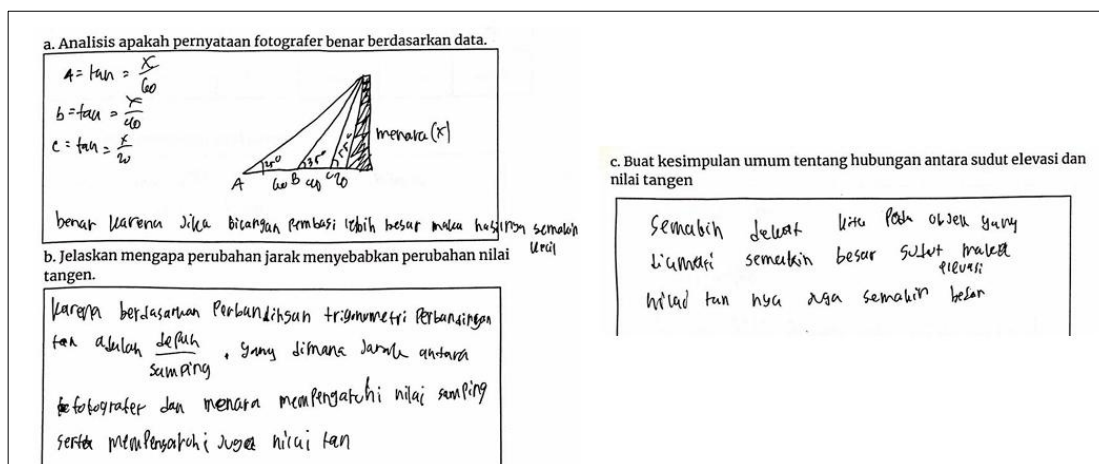 a. Analisis apakah pernyataan fotografer benar berdasarkan data.
A = tan = x/60
b = tan = x/40
c = tan = x/20
25° 35° 55°
menara (x)
A 60 B 40 C 20
benar karena Jika bilangan pembagi lebih besar maka hasilnya semakin
kecil
b. Jelaskan mengapa perubahan jarak menyebabkan perubahan nilai
tangen.
karena berdasarkan Perbandingan trigonometri Perbandingan
tan adalah depan/samping, yang dimana Jarak antara
fotografer dan menara mempengaruhi nilai samping
serta mempengaruhi Juga nilai tan
c. Buat kesimpulan umum tentang hubungan antara sudut elevasi dan
nilai tangen
Semakin dekat kita Pada objek yang
diamati semakin besar sudut elevasi maka
nilai tan nya juga semakin besar